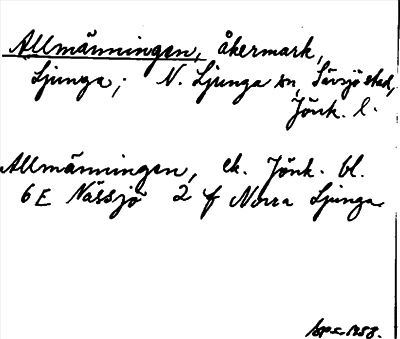 Allmänningen, åkermark,
Ljunga; N. Ljunga sn, Sävsjö stad,
Jönk. l.
Allmänningen, ek. Jönk. bl.
6 E Nässjö 2 f Norra Ljunga
1958.